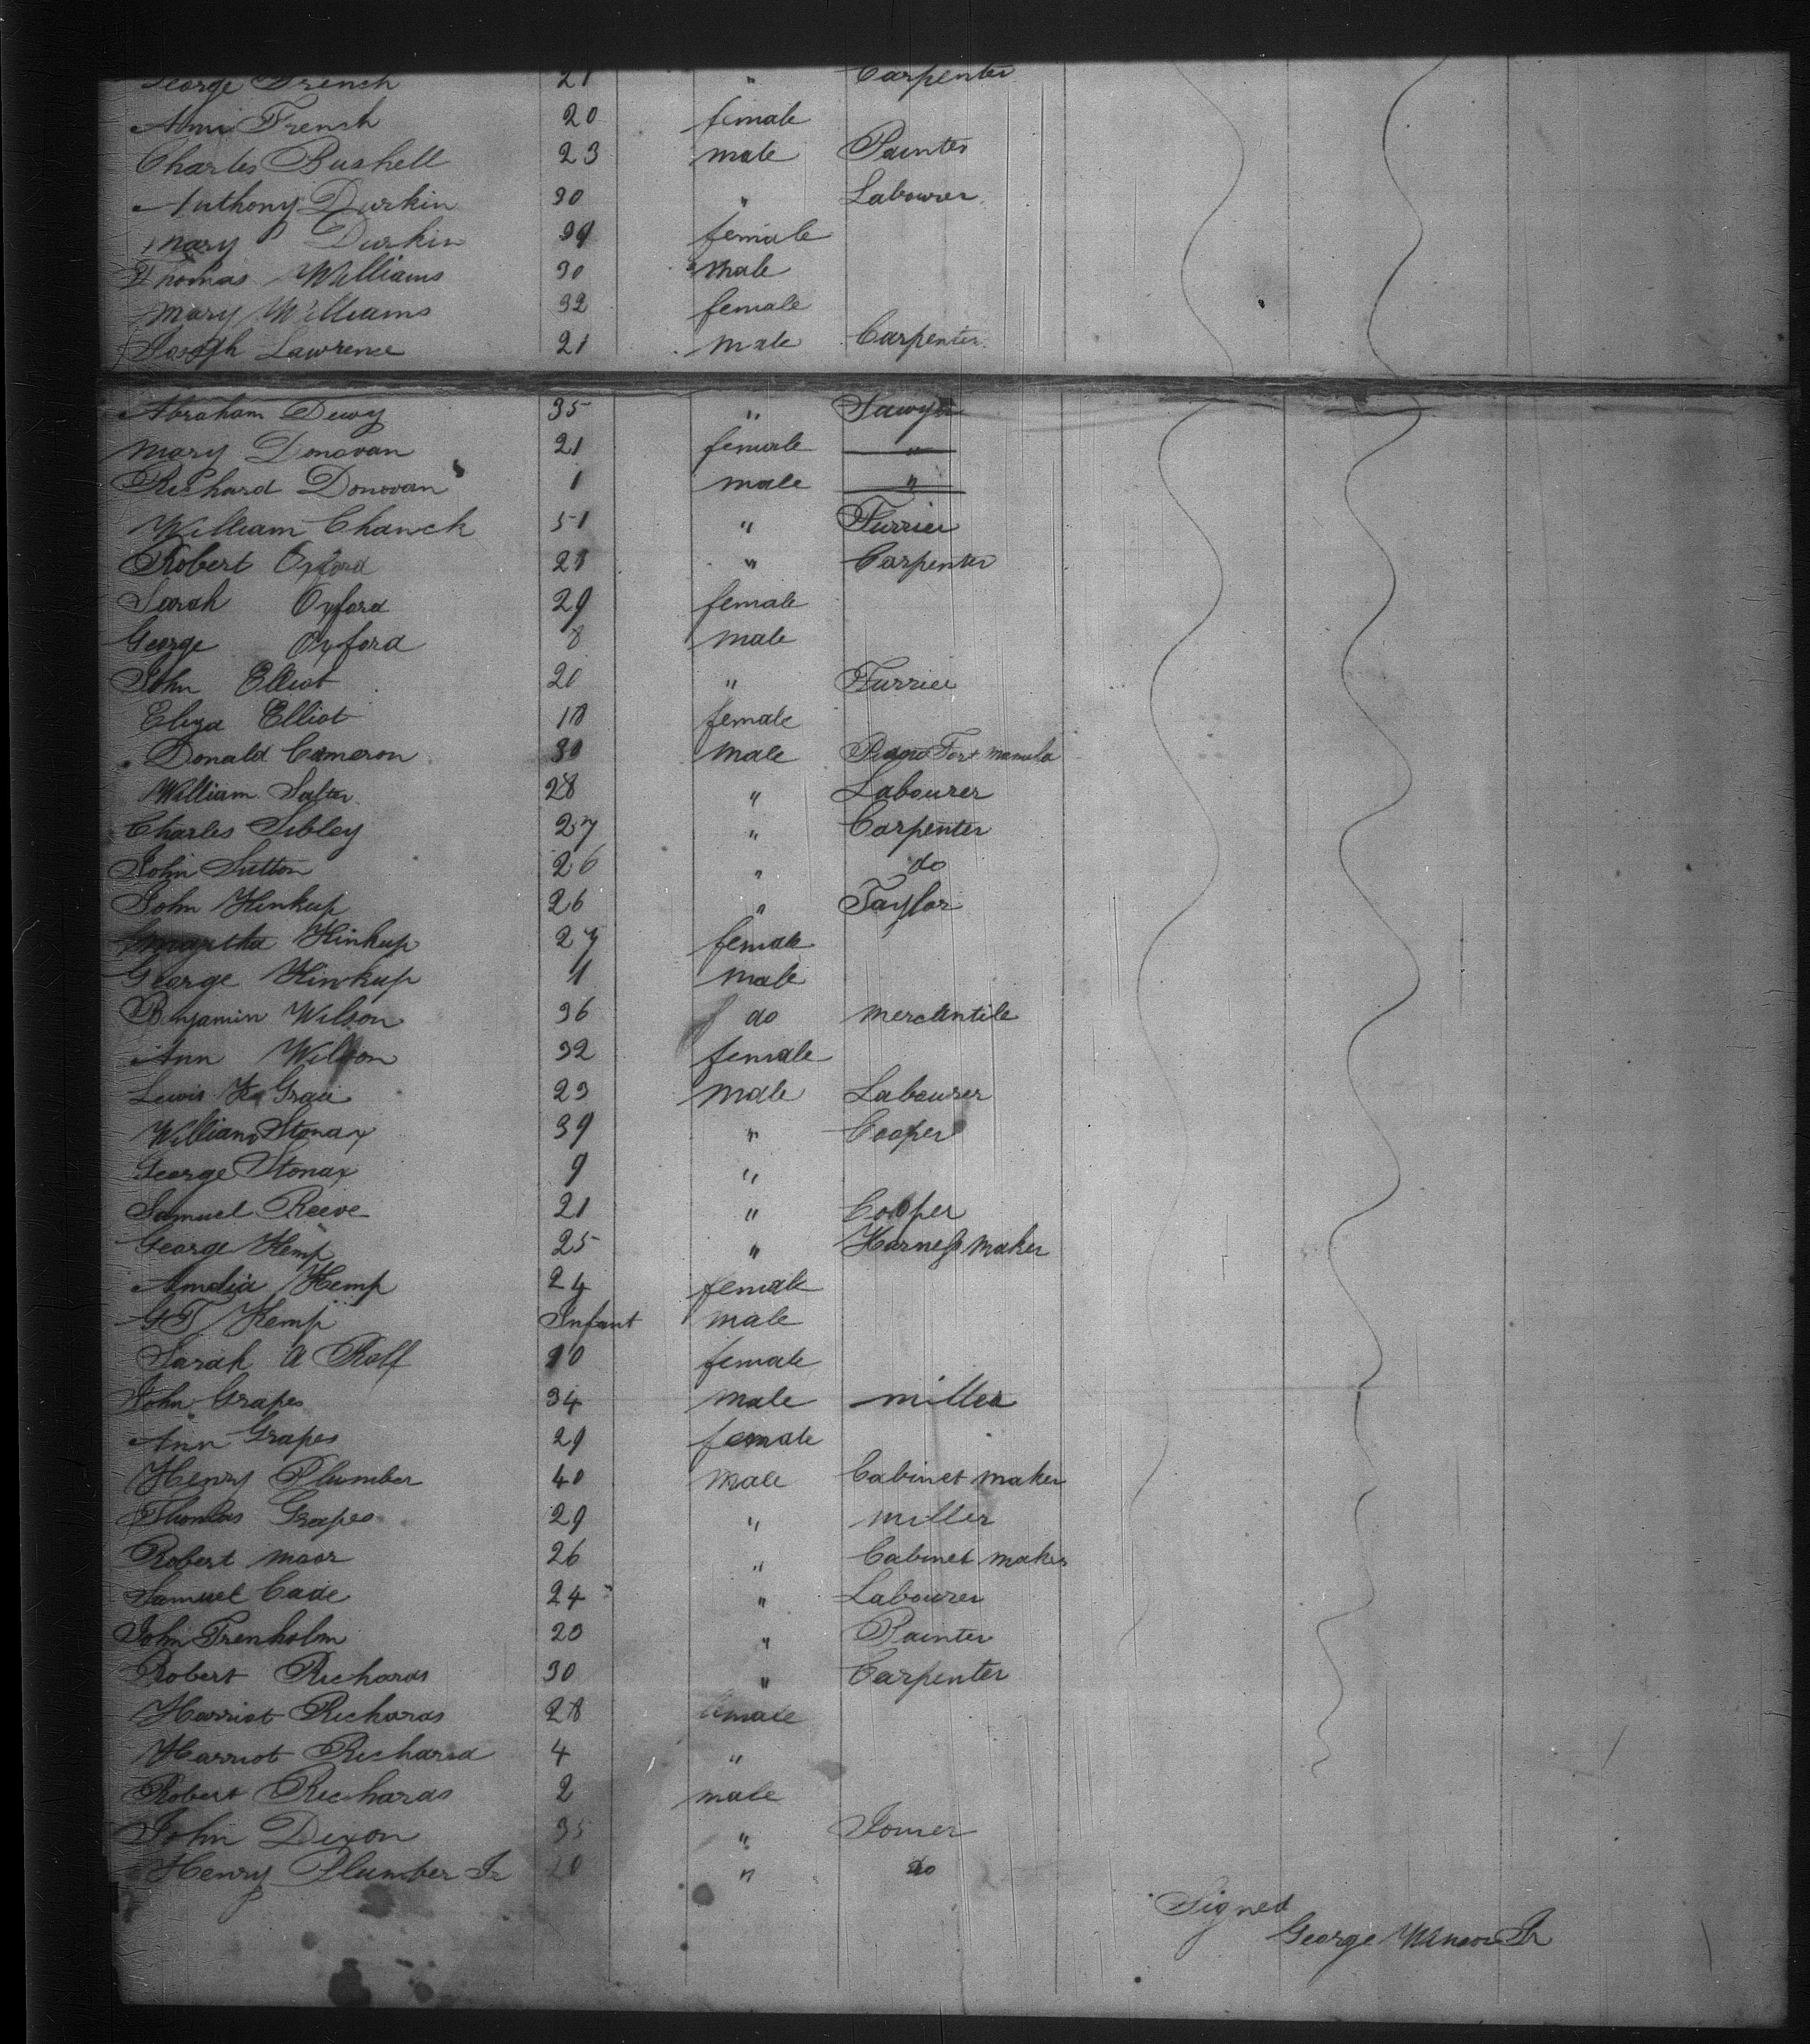 George French 21 " Carpenter
Ann French 20 female
Charles Bushell 23 male Painter
Anthony Durkin 30 " Labourer
Mary Durkin 39 female
Thomas Williams 30 male
Mary Williams 32 female
Joseph Lawrence 21 male Carpenter
Abraham Dewy 35 " Sawyer
Mary Donovan 21 female "
Richard Donovan 1 male "
William Chanck 51 " Furrier
Robert Oxford 28 " Carpenter
Sarah Oxford 29 female
George Oxford 8 male
John Elliot 20 " Furrier
Eliza Elliot 18 female
Donald Cameron 30 male Piano Fort
William Salter 28 " Labourer
Charles Sibley 27 " Carpenter
John Sutton 26 " do
John Hinkup 26 " Taylor
Martha Hinkup 27 female
George Hinkup 1 male
Benjamin Wilson 36 do mercantile
Ann Wilson 32 female
Lewis 23 male Labourer
William Stonax 39 " Cooper
George Stonax 9 "
Samuel Reeve 21 " Cooper
George Kemp 25 " Harness maker
Amelia Kemp 24 female
G T Kemp Infant male
Sarah A Rolf 10 female
John Grapes 34 male miller
Ann Grapes 29 female
Henry Plumber 40 male Cabinet maker
Thomas Grapes 29 " miller
Robert Moor 26 " Cabinet maker
Samuel Cade 24 " Labourer
John Trenholm 20 " Painter
Robert Richards 30 " Carpenter
Harriot Richards 28 female
Harriot Richards 4 "
Robert Richards 2 male
John Dixon 35 " Joiner
Henry Plumber Jr 20 " do
Signed
George Jr